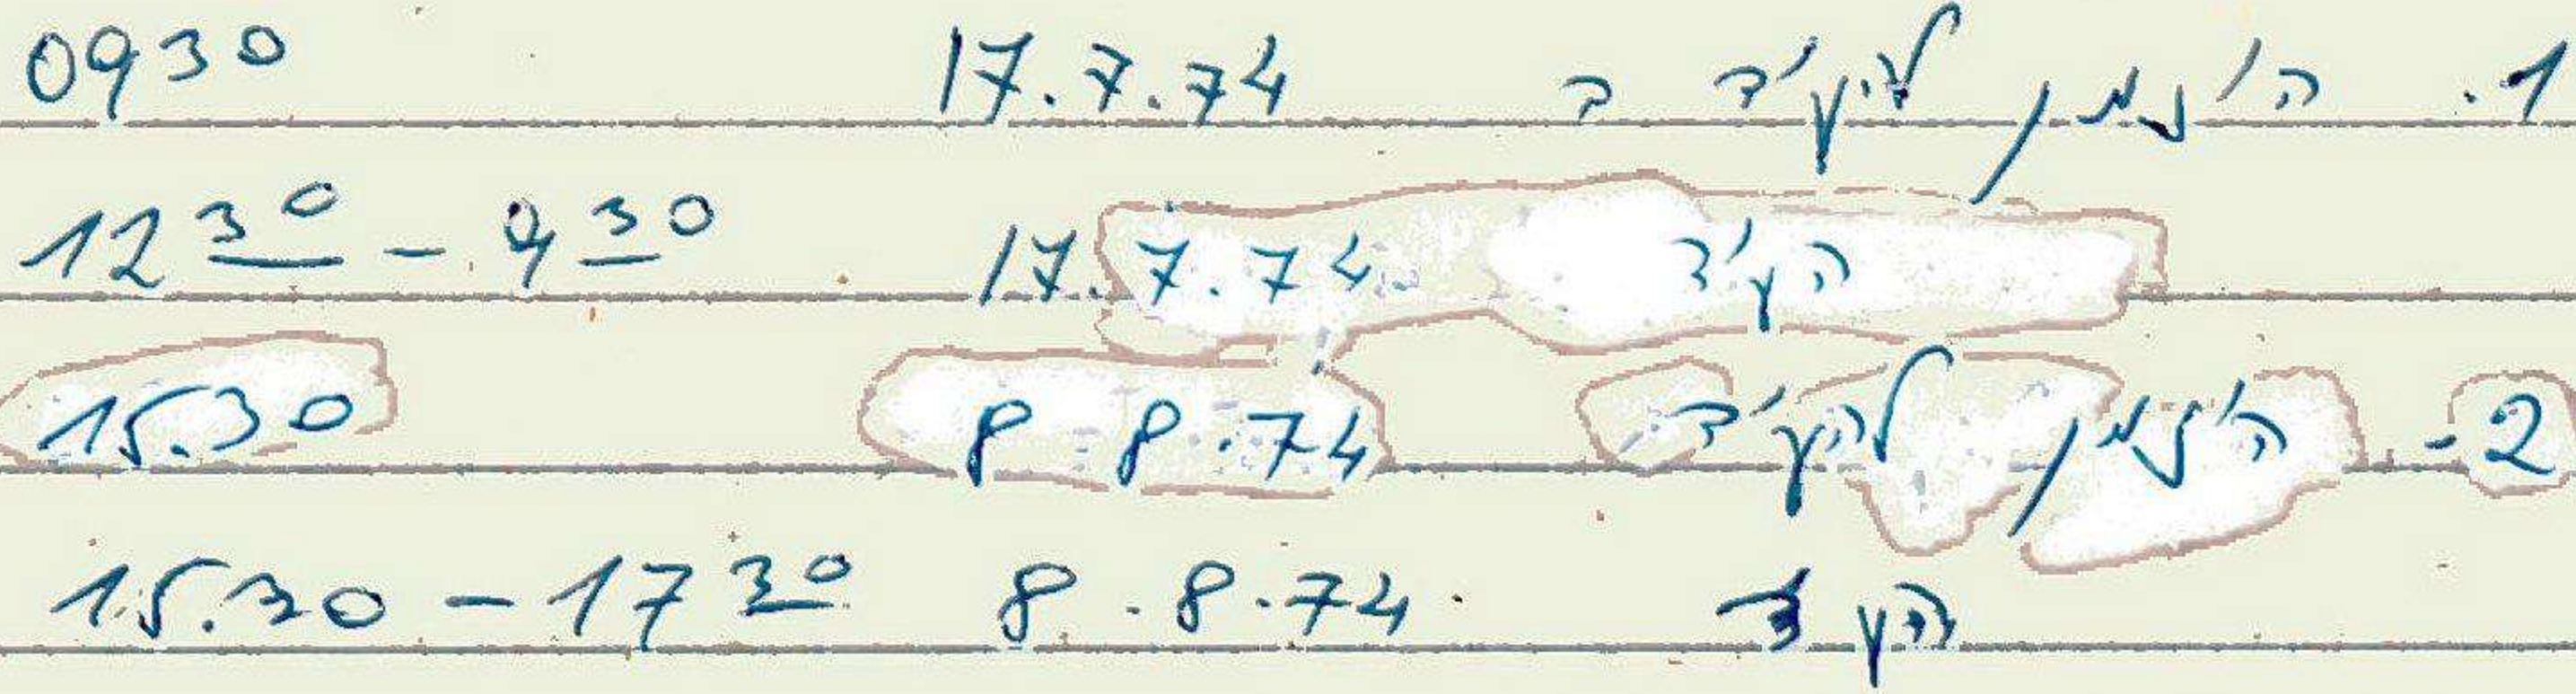 1. הוזמן להעיד ב 17.7.74 0930
העיד 17.7.74 12 30 - 9 30
2 - הוזמן להעיד 8 8.74 15.30
העיד 8.8.74. 15.30 - 17 30